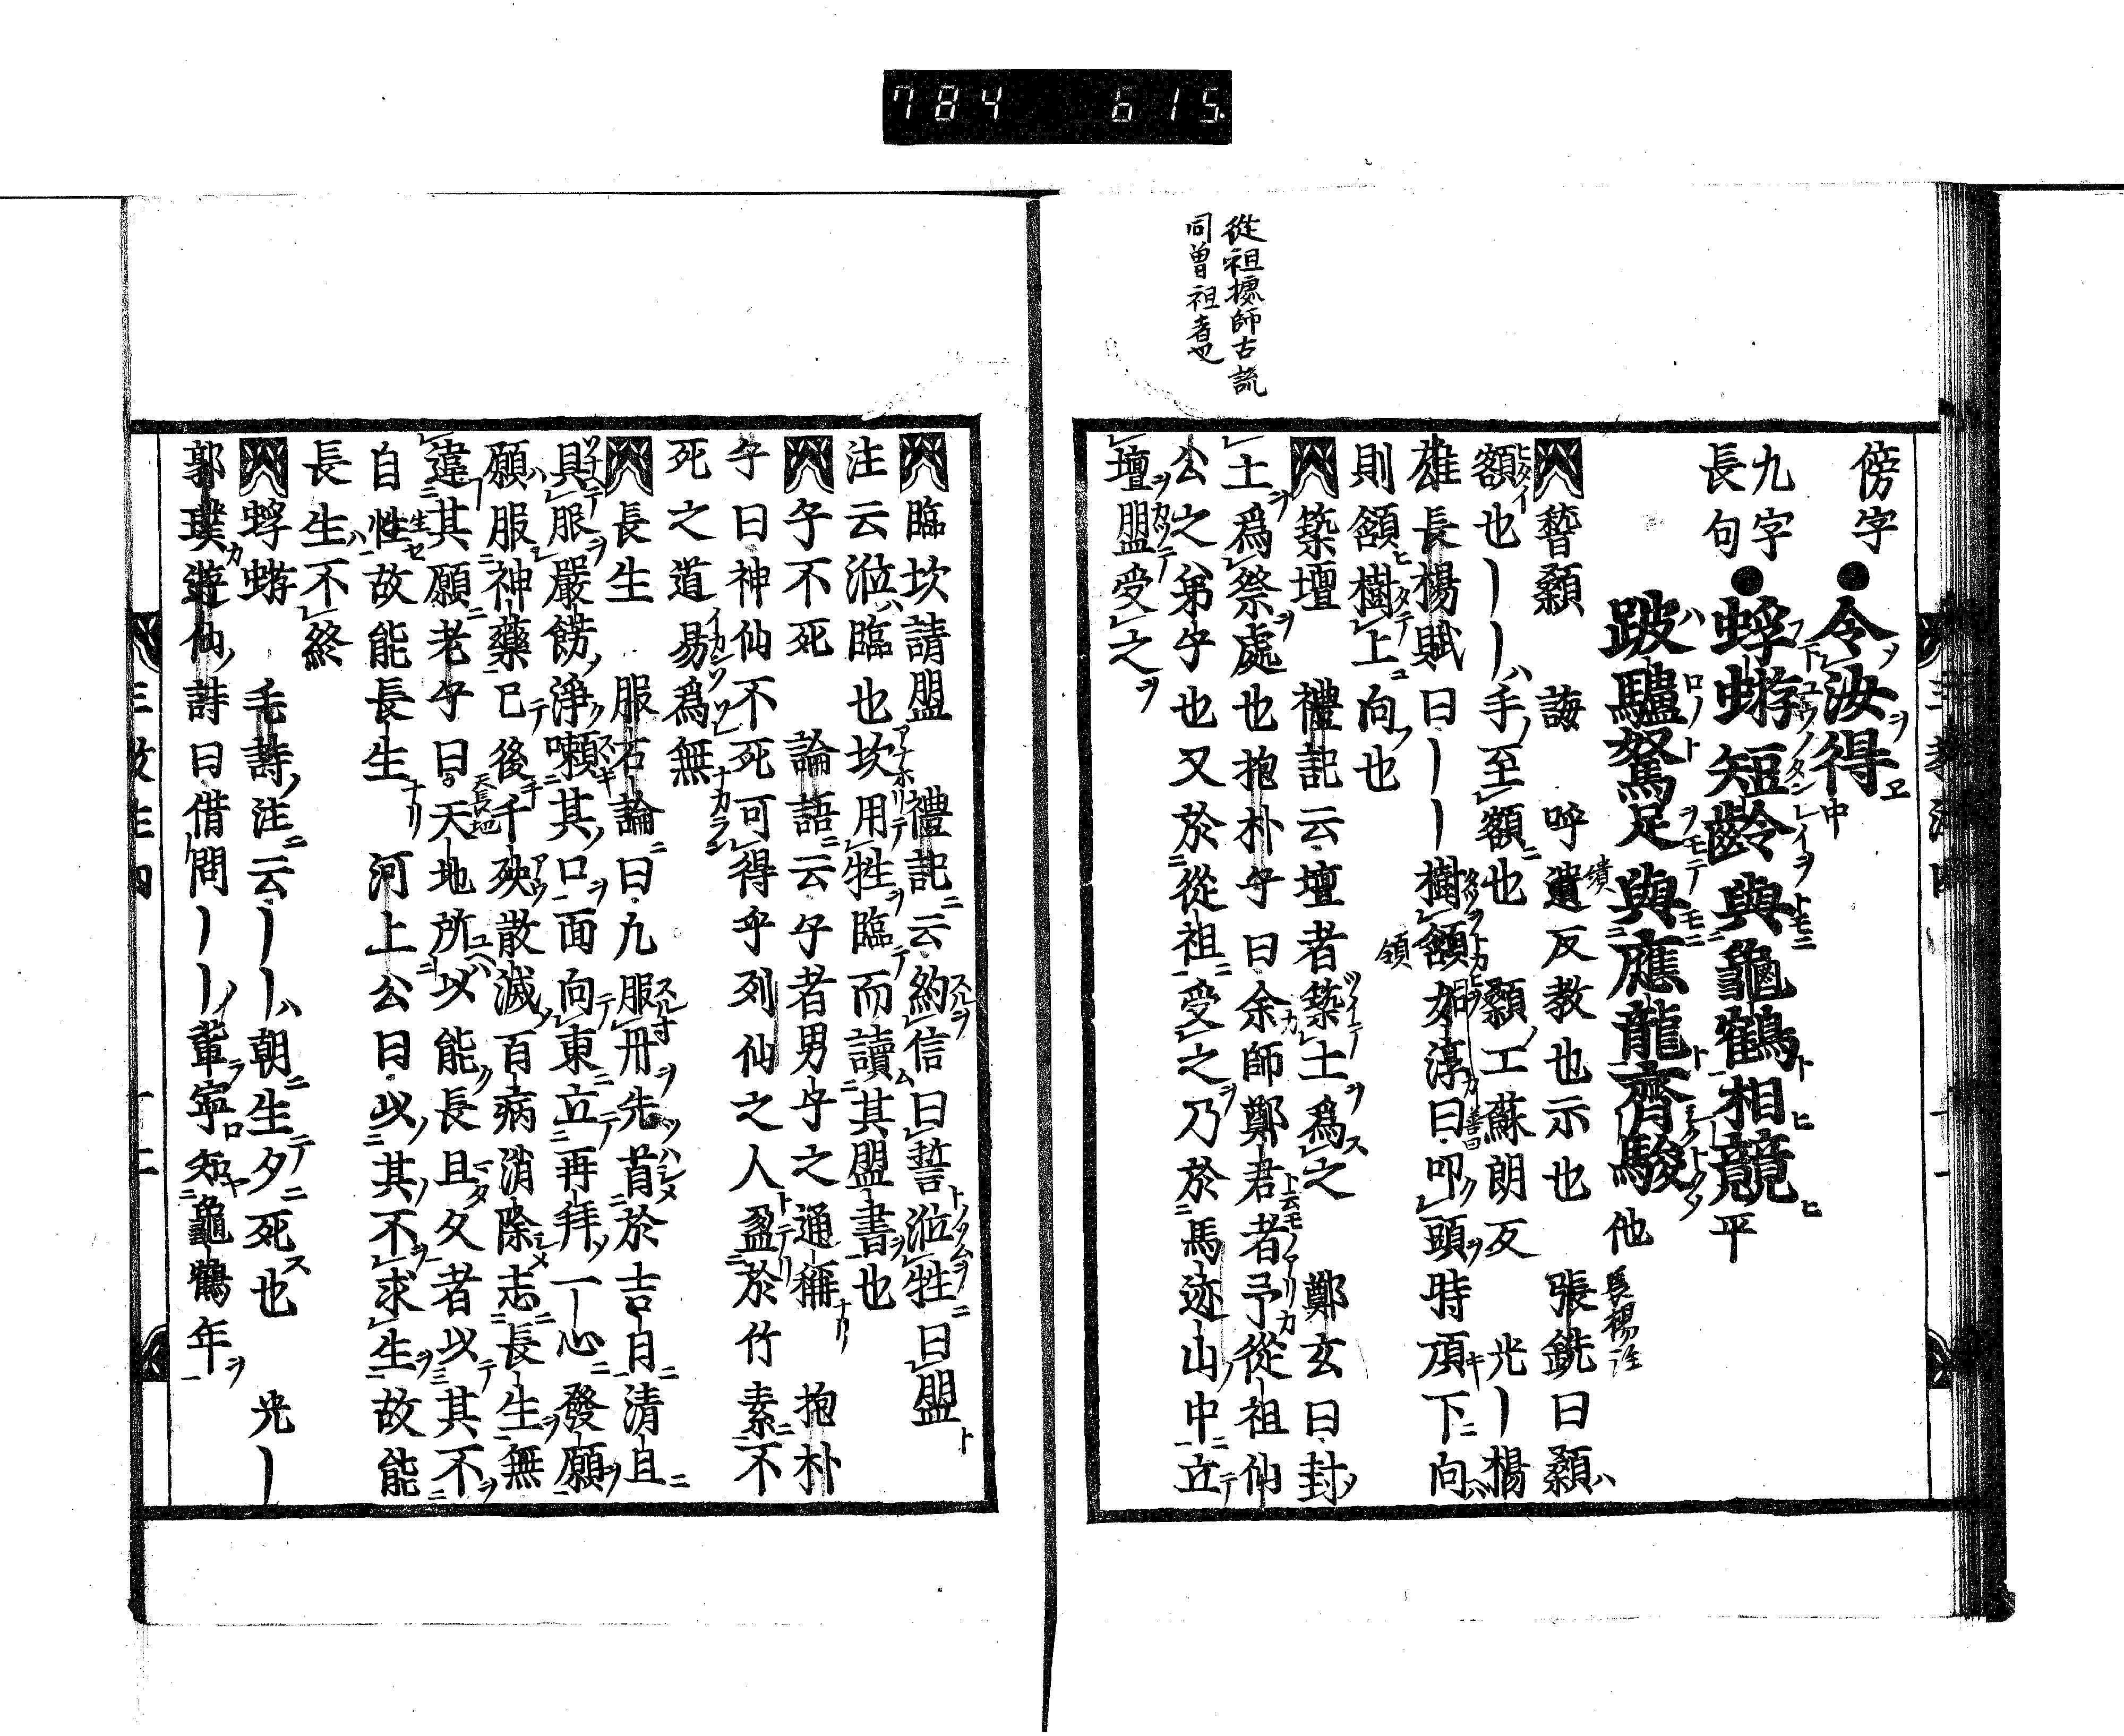 784 615
從祖摅師古說
同曽祖者也
傍字●令汝得中
九字
長句●蜉蝣短齡與龜鶴相競平
跛驢駑足與應龍齊駿他
稽顙 誨 呼遺反教也示也 張銑曰顙
額也ーー手至額也 顙工蘇朗反 光ー楊
雄長楊賦曰ーーー樹頷如淳曰叩頭時項下向
則頷樹上向也
築壇 禮記云壇者築土爲之 鄭玄曰封
土爲祭處也抱朴子曰余師鄭君者予從祖仙
公之弟子也又於從祖受之乃於馬迹山中立
壇盟受之
臨坎請盟 禮記云約信曰誓涖牲曰盟
注云涖臨也坎用牲臨而讀其盟書也
子不死 論語云子者男子之通稱 抱朴
子曰神仙不死可得乎列仙之人盈於竹素不
死之道易爲無
長生 服石論曰凡服丹先首於吉日清旦
具服嚴餝淨嗽其口面向東立再拜一心發願
願服神藥已後千殃散滅百病消除志長生無
違其願老子曰天地所以能長且久者以其不
自性故能長生 河上公曰以其不求生故能
長生不終
蜉蝣 毛詩注云ーー朝生夕死也 光ー
郭璞遊仙詩曰借問ーー輩寧知龜鶴年